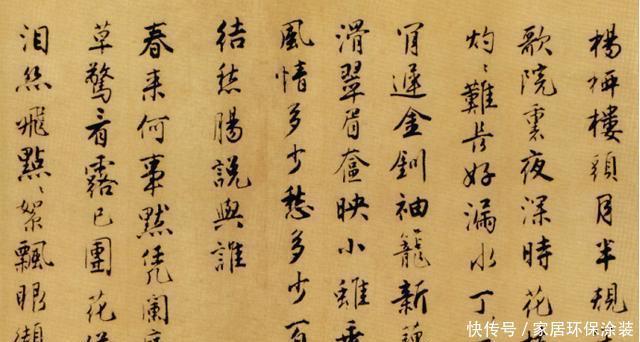 楊柳樓頭月半規
歌院裏夜深時花
灼〻難長好漏水丁
遲金釧袖籠新
滑翠眉奩映小
風情多少愁多少百
結愁腸説與誰
春来何事默凭闌
草驚看露已團花
泪絲飛點〻絮飄眼纈
快传号/家居环保涂装